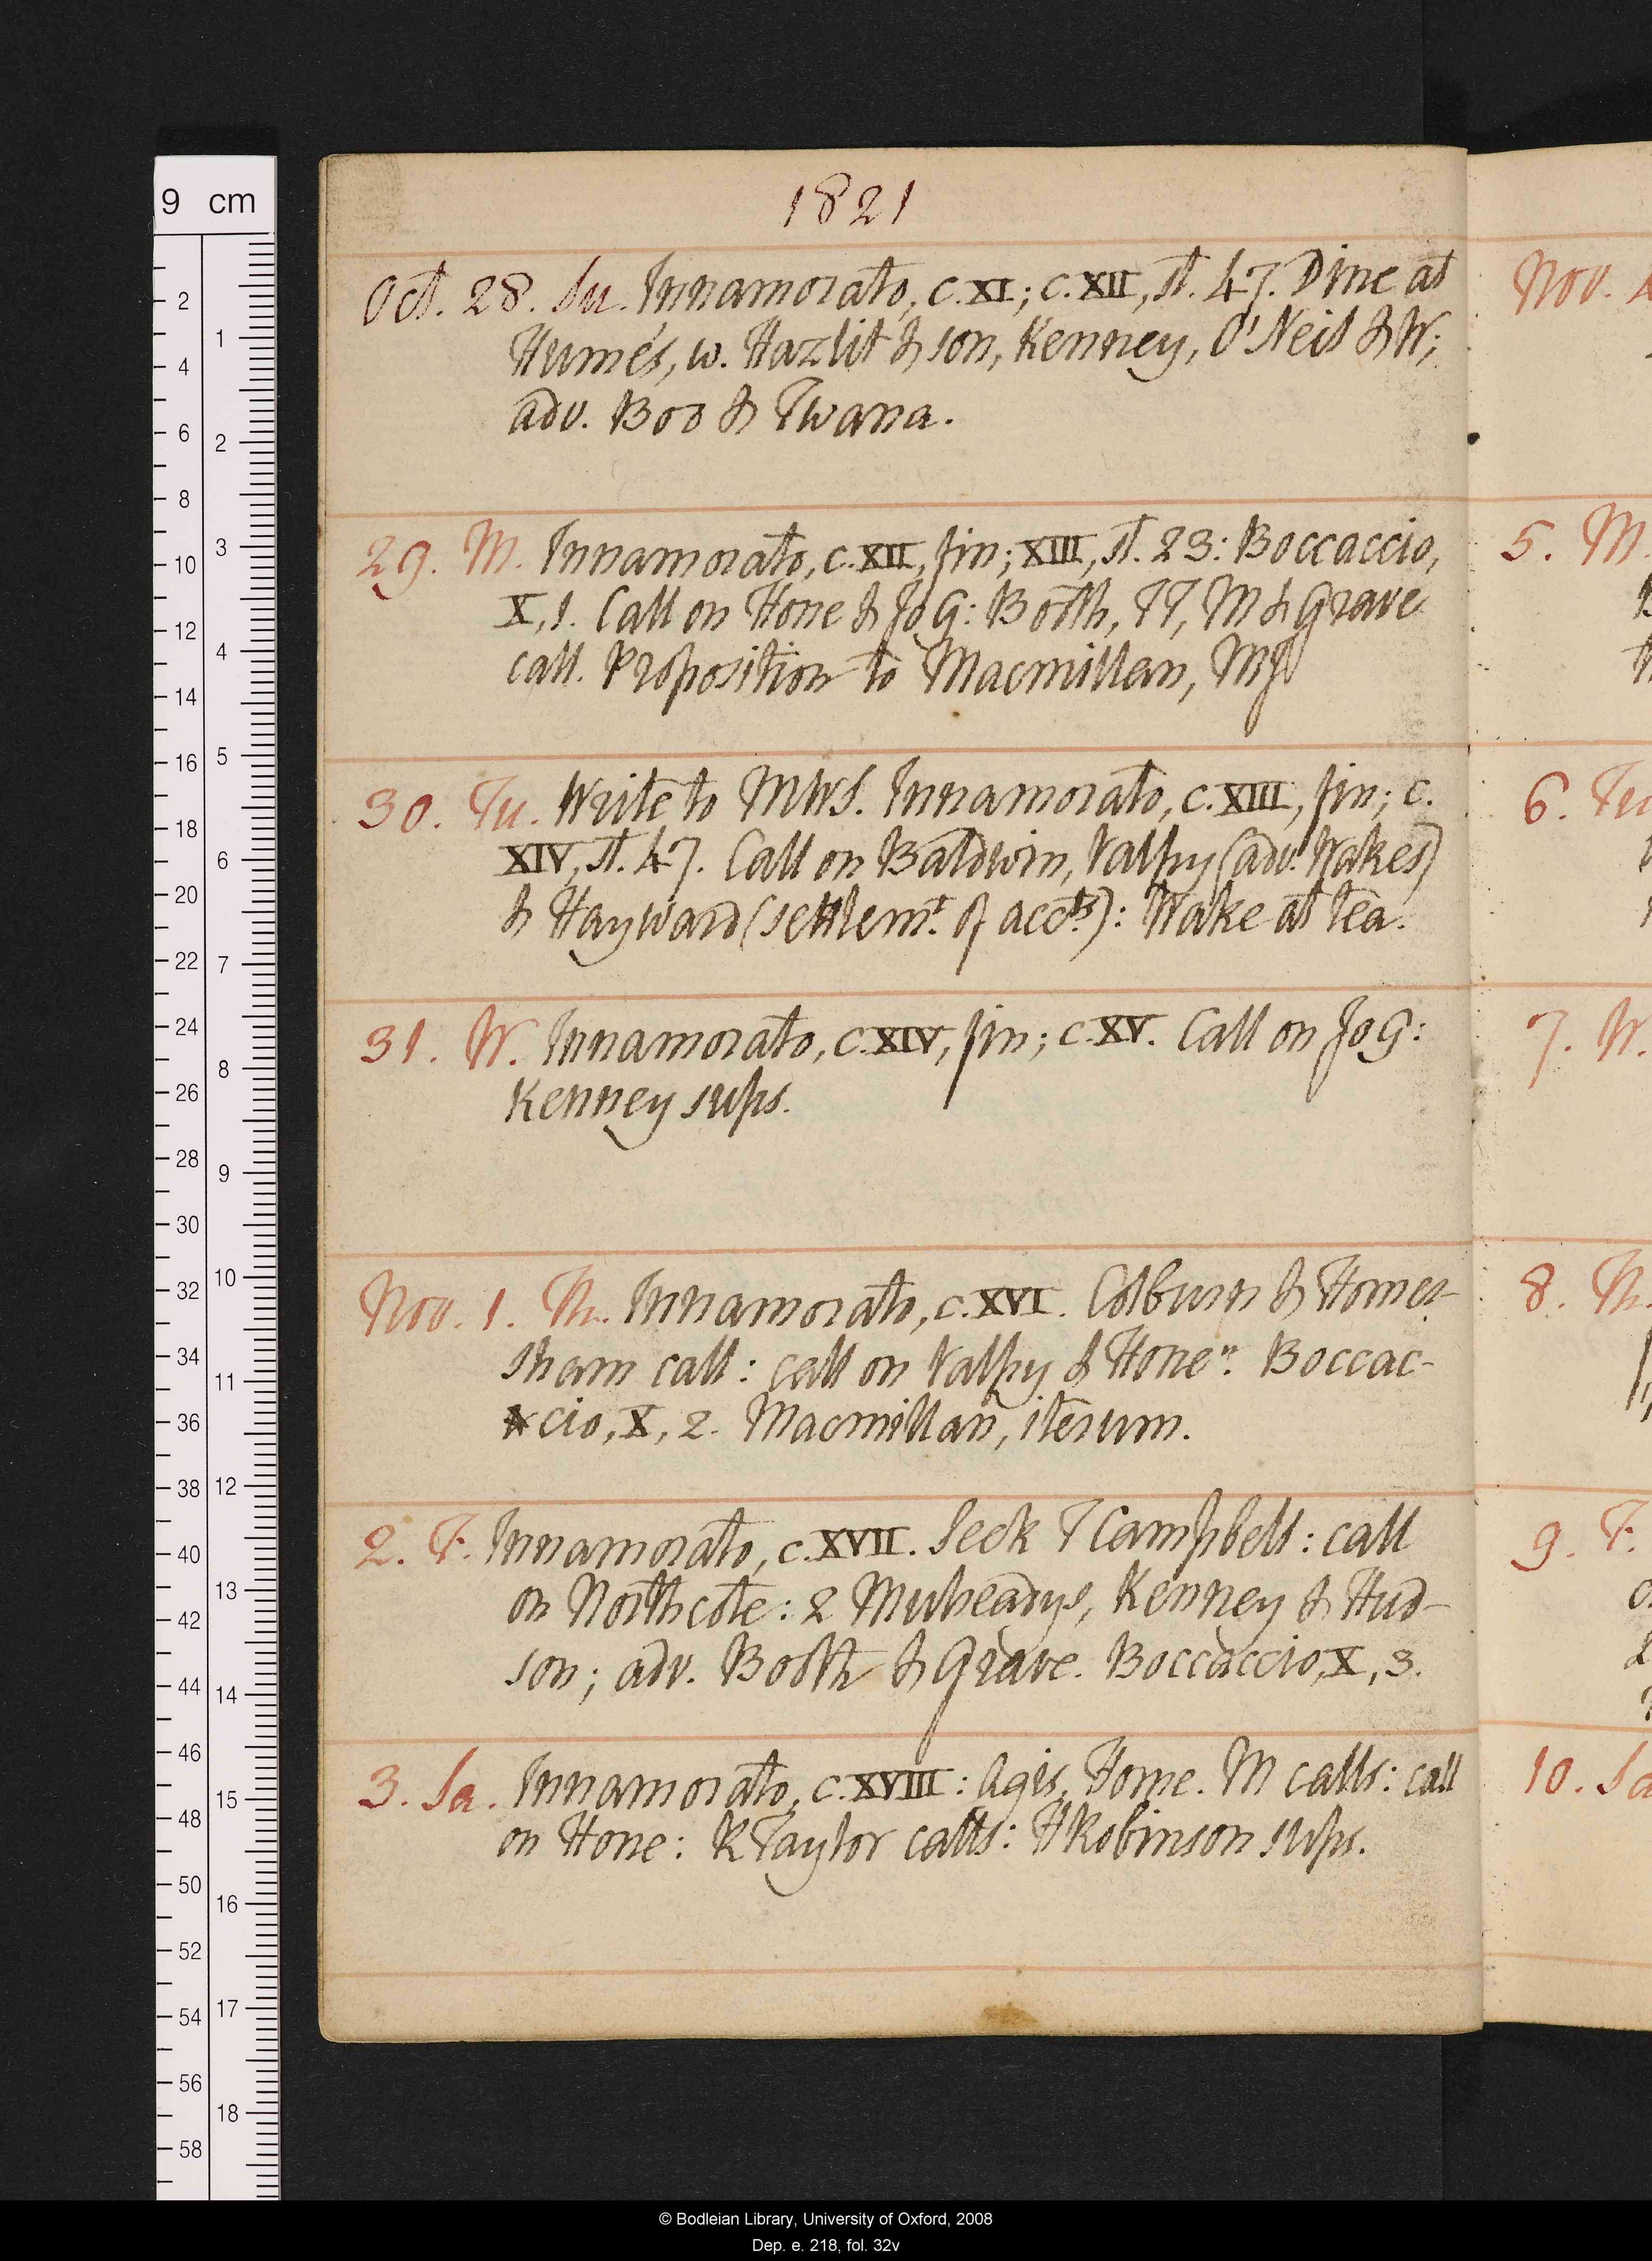 1821
Oct. 28. Su. Innamorato, c. XI; c. XII, st. 47. Dine at
Hume's, w. Hazlit & son, Kenney, O'Neil & W;
adv. Boo & Twana.
29. M. Innamorato, c. XII, fin; XIII, st. 23: Boccaccio,
X, 1. Call on Hone & JoG: Booth, TT, M & Grave
call. Proposition to Macmillan, MJ
30. Tu. Write to MWS. Innamorato, c. XIII, fin; c.
XIV, st. 47. Call on Baldwin, Valpy (adv. Wakes)
& Hayward (settlemt. of accts): Wake at tea.
31. W. Innamorato, c. XIV, fin; c. XV. Call on JoG:
Kenney sups.
Nov. 1. Th. Innamorato, c. XVI. Colburn & Homer-
sham call: call on Valpy & Hone n. Boccac-
cio, X, 2. Macmillan, iterum.
2. F. Innamorato, c. XVII. Seek TCampbell: call
on Northcote: 2 Mulreadys, Kenney & Hud-
son; adv. Booth & Grave. Boccaccio, X, 3.
3. Sa. Innamorato, c. XVIII: Agis, Home. M calls: call
on Hone: RTaylor calls: HRobinson sups.
Nov.
5. M.
6. Tu
7. W.
8. Th.
9. F.
10. Sa
9 cm
2
4
6
8
10
12
14
16
18
20
22
24
26
28
30
32
34
36
38
40
42
44
46
48
50
52
54
56
58
1
2
3
4
5
6
7
8
9
10
11
12
13
14
15
16
17
18
© Bodleian Library, University of Oxford, 2008
Dep. e. 218, fol. 32v